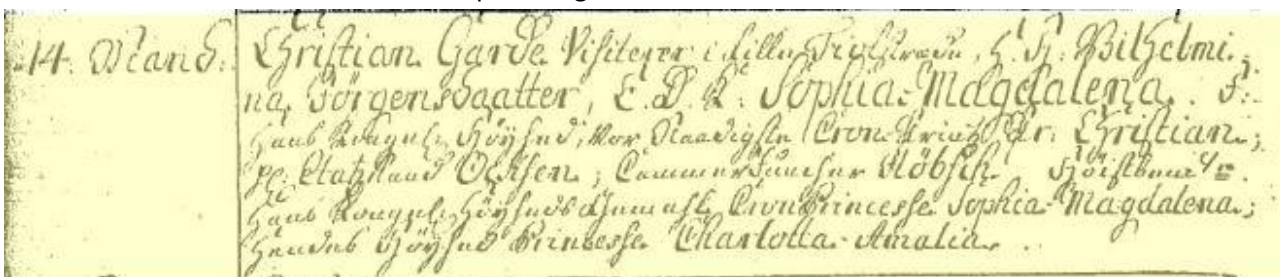 14. Mand:
Christian Garde Visiterer i lille H. H. Wilhelmi-
na Jörgensdaatter, E. D. K: Sophia-Magdalena. F:
Hans Kongel: Höyhed, Vor Naadigste Cron Printz Hr. Christian;
Etatzraad Ochsen; Cammerjuncher
Hans Kongel: Höyheds Gemahl CronPrincesse Sophia Magdalena;
Hendes Höyhed Princesse Charlotta-Amalia.